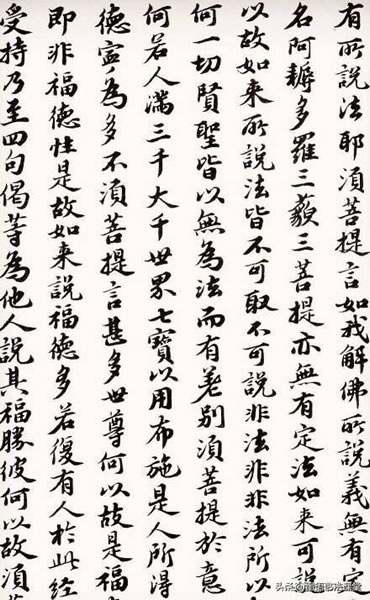 有所說法耶須菩提言如我解佛所說義無有定
名阿耨多羅三藐三菩提亦無有定法如来可說
以故如来所說法皆不可取不可說非法非非法所以
何一切賢聖皆以無為法而有差別須菩提於意
何若人滿三千大千世界七寶以用布施是人所得
德寧為多不須菩提言甚多世尊何以故是福
即非福德性是故如来說福德多若復有人於此经
受持乃至四句偈等為他人說其福勝彼何以故須菩
头条